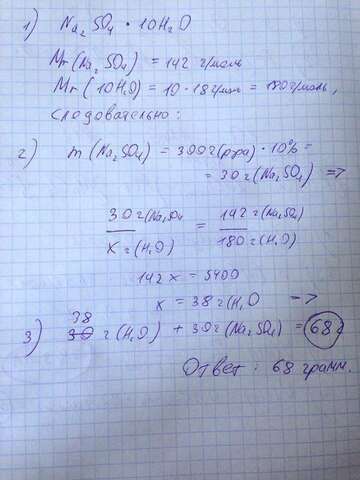 1) Na₂SO₄ · 10H₂O
Mr(Na₂SO₄) = 142 г/моль
Mr(10H₂O) = 10 · 18 г/моль = 180 г/моль,
следовательно:
2) m(Na₂SO₄) = 300г(р-ра) · 10% =
= 30г(Na₂SO₄) =>
30г(Na₂SO₄ / X г(H₂O) = 142г(Na₂SO₄) / 180г(H₂O)
142x = 5400
x = 38г(H₂O =>
3) 38 г(H₂O) + 30г(Na₂SO₄) = 68г
Ответ: 68 грамм.